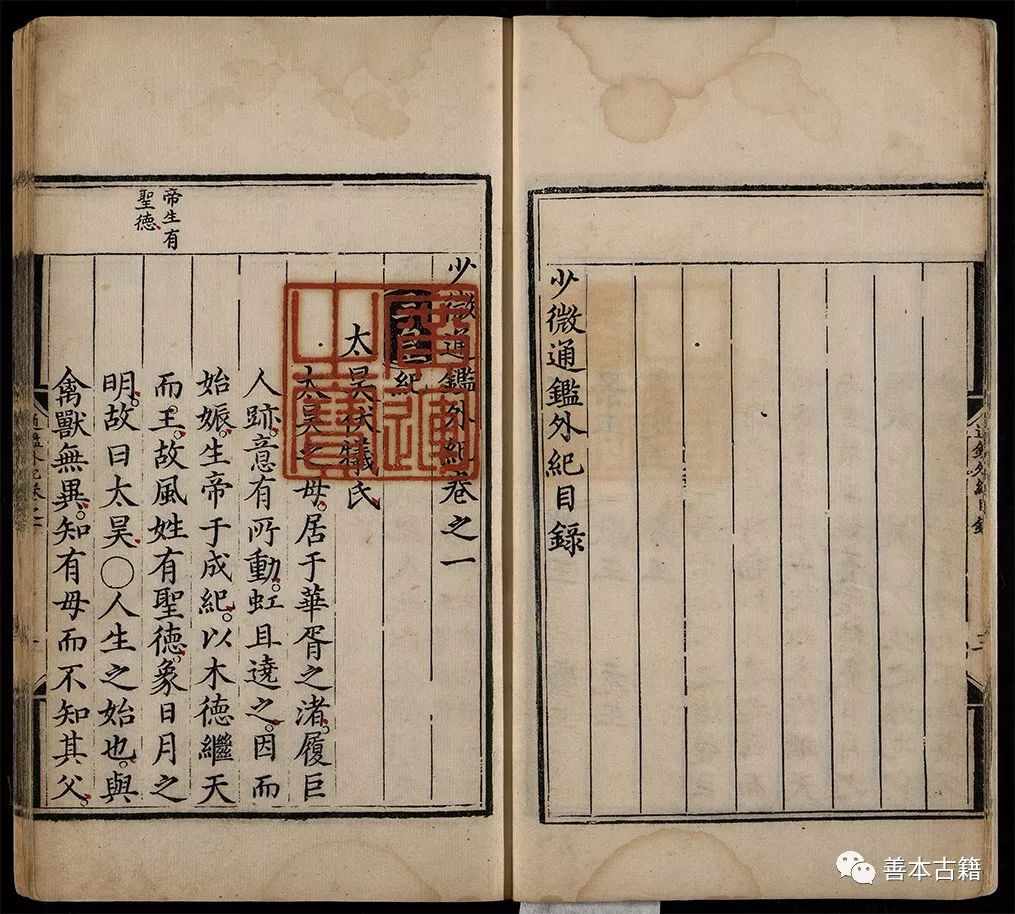 少微通鑑外紀目錄
少微通鑑外紀卷之一
紀
太昊伏犧氏
太昊之母。居于華胥之渚。履巨
人跡。意有所動。虹且遶之。因而
始娠。生帝于成紀。以木德繼天
而王。故風姓有聖德。象日月之
明。故曰太昊○人生之始也。與
禽獸無異。知有母而不知其父。
帝生有
聖德
善本古籍